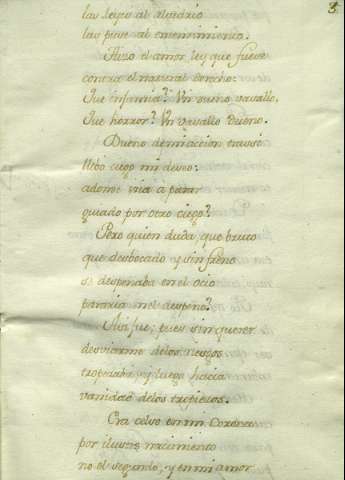 3
las leyes al
las puse al entendimiento.
Hizo el amor ley que fuese
contra el natural derecho:
Que infamia? Un buen vasallo.
Que horror? Un vasallo Dueño.
Dueño de mi accion
llevó ciego mi deseo:
adonde iria a parar
guiado por otro ciego?
Pero quien duda, que bruto
que desbocado y sin freno
se despeñaba en el ocio
pararia en el despeño?
Assi fue; pues sin querer
desviarme delos riesgos
tropezaba, y luego hacia
vanidad delos tropiezos.
Era Celso en mi Corona
por ilustre nacimiento
no el segundo, y en mi amor